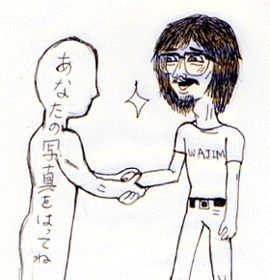 あなたの写真をはってね
WAJIM